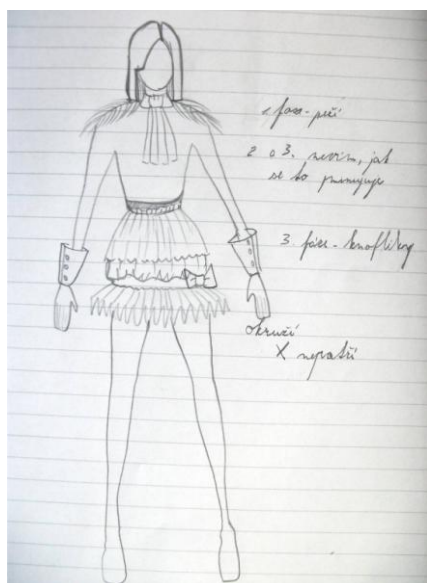 peří
2 a 3. nevím, jak
se to jmenuje
3. knoflíky
okruží
X nepatří